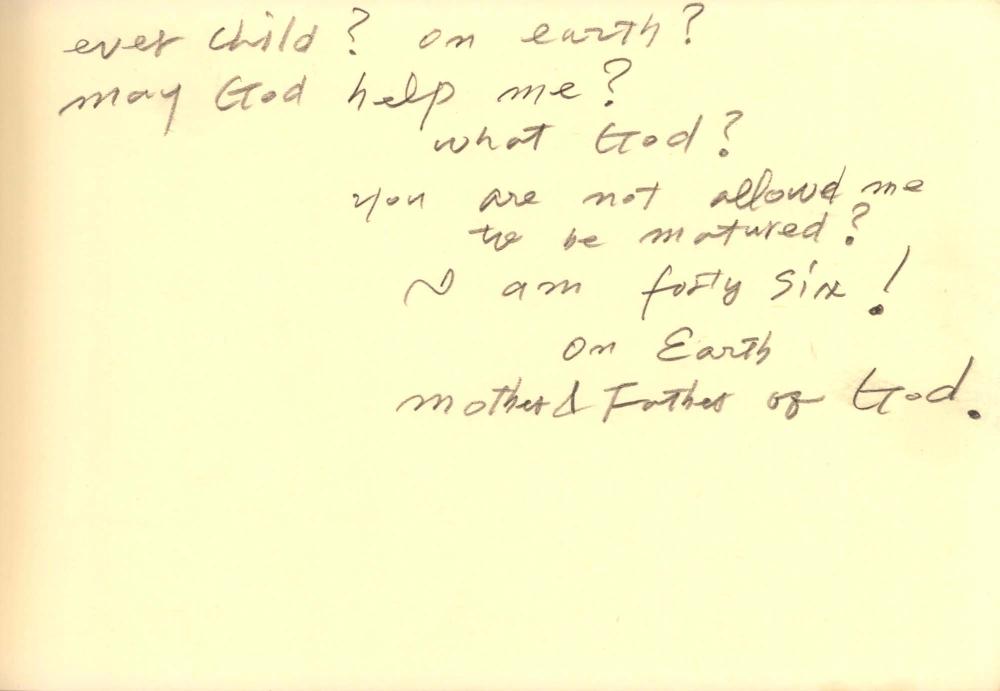 ever child? on earth?
may God help me?
what God?
you are not allowed me
to be matured?
I am forty six!
on Earth
mother & Father of God.